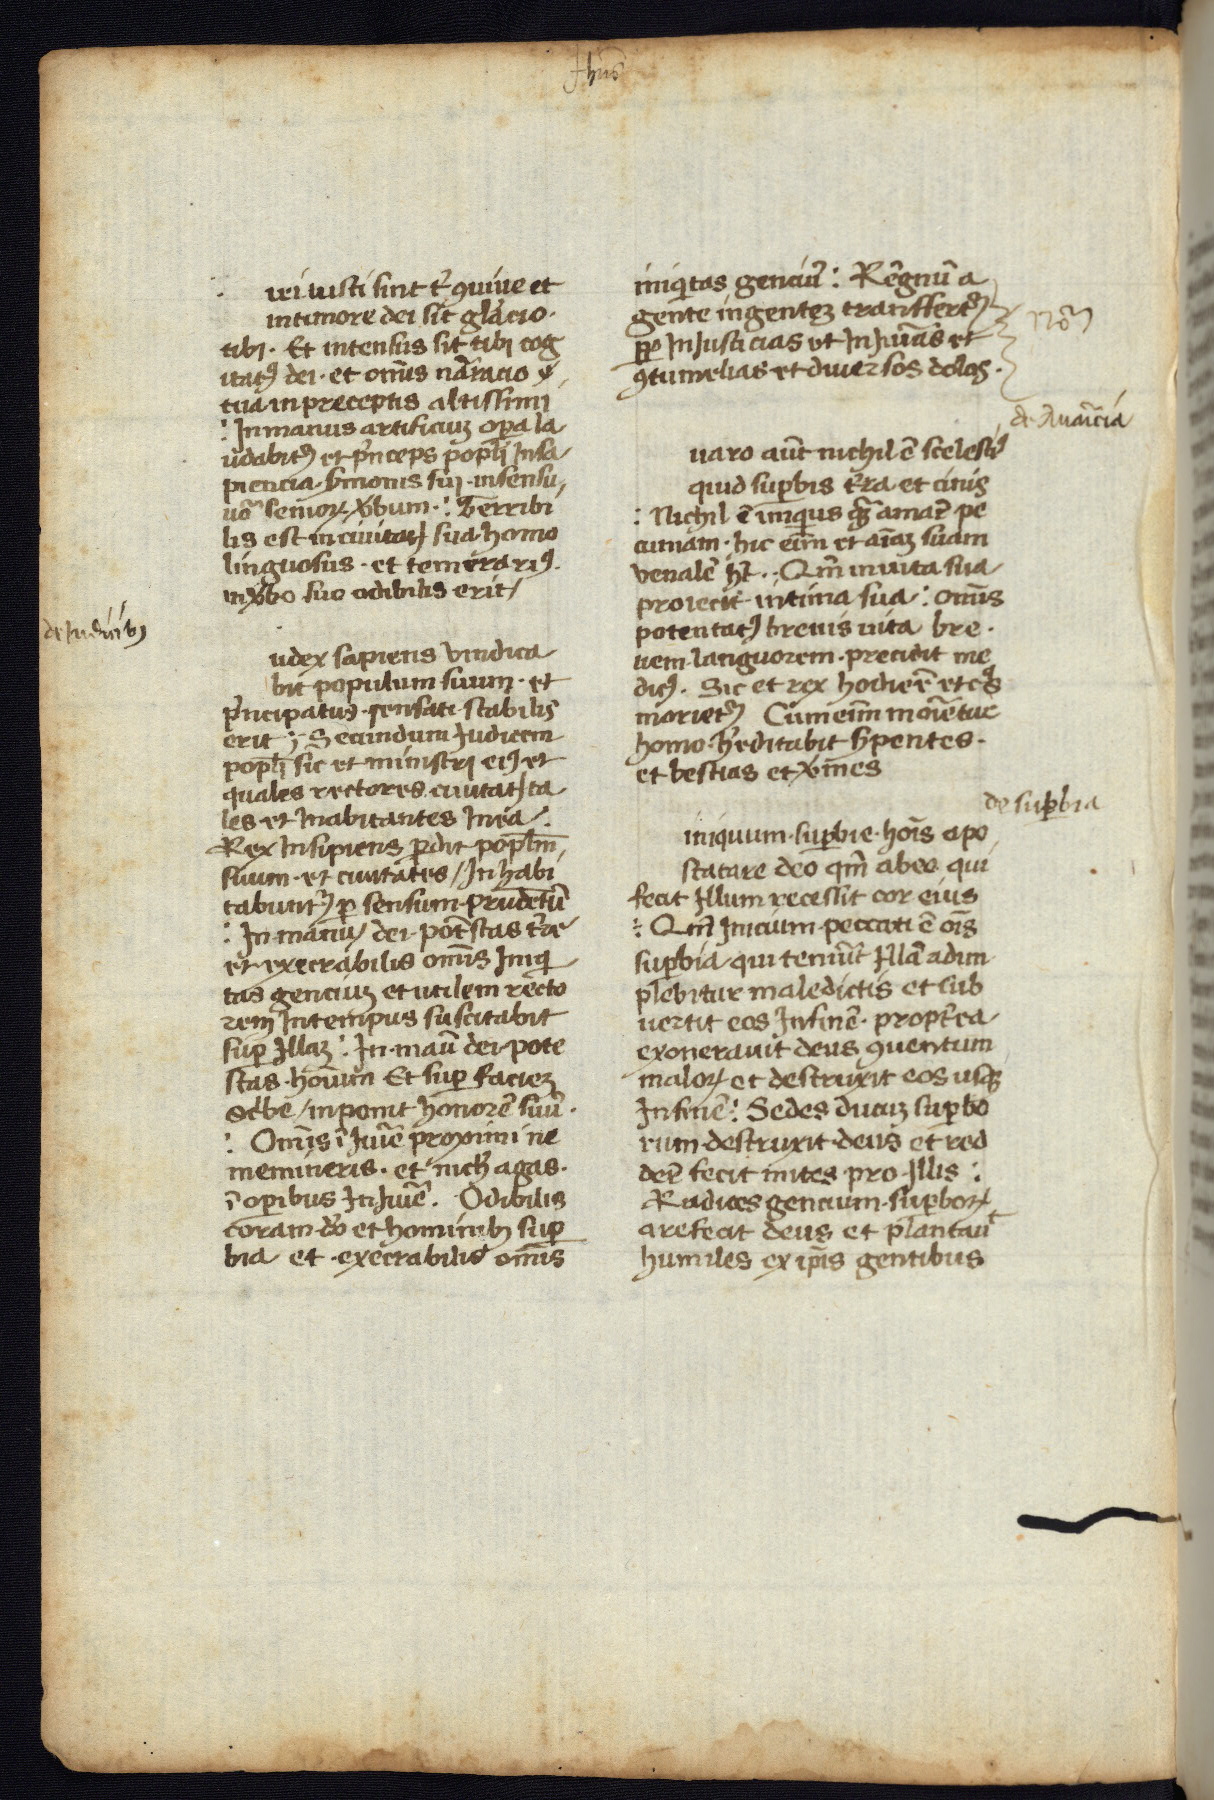 Jhūs
iri iusti sint t' ꝯuiue et
in timore dei sit gl'acio·
tibi· Et in sensus sit tibi cog
itatꝰ dei· et om̄is nā'racio
tua in preceptis altissimi
: In manus artificiuꝫ opa la
udabitꝰ et p'nceps popl'i Insa
piencia s'monis sui· in sensu
uō' senioꝝ v'bum· : Terribi
lis est in ciuitatꝭ sua homo
linguosus· et temerariꝰ·
in v'bo suo odibilis erit
de Iudicibꝫ
udex sapiens vindica
bit populum suum· et
p'ncipatus· sensati· stabilis
erit ; Secundum Judicem
popl'i sic et ministri eiꝰ et
quales rectores ciuitatꝭ ta
les et Inabitantes In ea :
Rex Insipiens ꝑdit popl'm
suum· et ciuitates / In habi
tabuntꝰ ꝑ sensum prudētū
: In manu dei potēstas t're
et execrabilis om̄is Iniqi
tas genciuꝫ et utilem recto
rem In tempus suscitabit
suꝑ Jllaꝫ : In manū dei pote
stas hoīum Et suꝑ facieꝫ
sc'be / inponit honorē suū·
: Om̄is ī Iurīe proximi ne
memineris· et nich' agas·
ī opibus In Iurīe· Odibilis
coram dō et hominibꝫ suꝑ
bia et execrabilis om̄is
iniqitas genciū : Rēgnū a
gente in genteꝫ transffertꝰ
ꝓꝑ Injusticias et In Iurīas et
ꝯtumelias et diuersos dolos·
Nō
de Auaricia
uaro aūt nichil ē scelestiꝰ
quid suꝑbis t'ra et cinis
: Nichil ē iniquus q̄ꝫ amar̄ pe
cuniam· hic eīm et aīaꝫ suam
venalē h̄t· Qm̄ in uita sua
proiecit intima sua : om̄is
potentatꝰ breuis uita bre·
uem languorem· precidit me
dicꝰ· Sic et rex hodie ē et cͣs
morietꝰ Cum eīm moriētuc
homo· h'editabit s'pentes·
et bestias et v'mes
de suꝑbia
iniquum· suꝑbie· hoīs apo
statare deo qm̄ ab eo qui
fecit Jllum recessit cor eius
: Qm̄ Inicium peccati ē oīs
suꝑbia qui tenuīt Jllā adim
plebitur maledictis et sub
uertit eos In finē· propt'ea
exonerauit deus ꝯuentum
maloꝝ et destruxit eos usqꝫ
In finē : Sedes ducuꝫ suꝑbo
rum destruxit deus et sed
dēr fecit mites pro Jllis :
Radices gencium suꝑboꝝ
arefecit deus et plantauͭ
humiles ex ip̄is gentibus